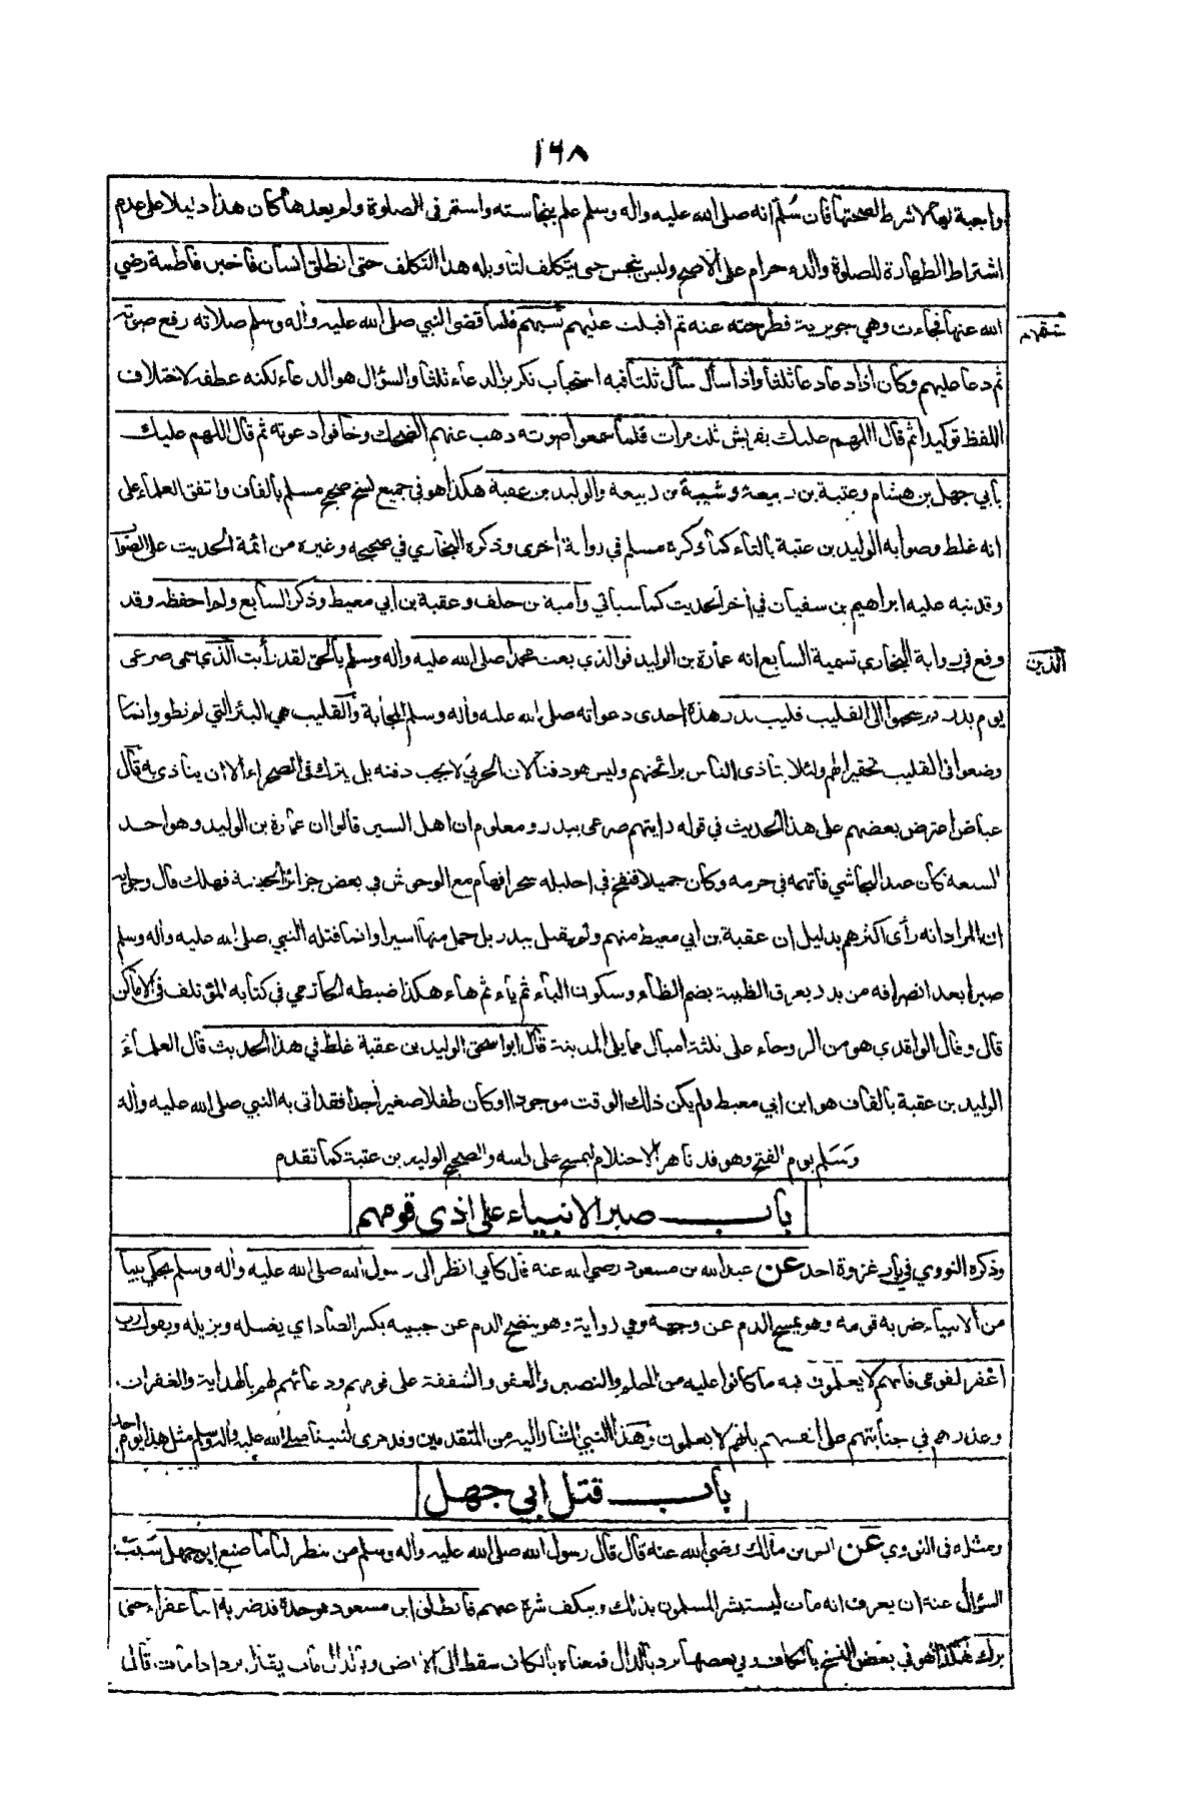 ١٦٨
واجبة لها لا شرط لصحتها فان سُلم انه صلى الله عليه واله وسلم علم بنجاسته واستمر في الصلوة ولم يعدها كان هذا دليلا على عدم
اشتراط الطهارة للصلوة والدم حرام على الاصح وليس بنجس حتى يتكلف لتاويله هذا التكلف حتى انطلق انسان فاخبر فاطمة رضي
الله عنها فجاءت وهي جويرية فطرحته عنه ثم اقبلت عليهم تسبهم فلما قضى النبي صلى الله عليه واله وسلم صلاته رفع صوته
تشتمهم
ثم دعا عليهم وكان اذا دعا دعا ثلثا واذا سأل سأل ثلثا فيه استحباب تكرير الدعاء ثلثا والسؤال هو الدعاء لكنه عطفه لاختلاف
اللفظ توكيدا ثم قال اللهم عليك بقريش ثلث مرات فلما سمعوا صوته ذهب عنهم الضحك وخافوا دعوته ثم قال اللهم عليك
بابي جهل بن هشام وعتبة بن ربيعة وشيبة بن ربيعة والوليد بن عقبة هكذا هو في جميع نسخ صحيح مسلم بالقاف واتفق العلماء على
انه غلط وصوابه الوليد بن عتبة بالتاء كما ذكره مسلم في رواية اخرى وذكره البخاري في صحيحه وغيره من ائمة الحديث على الصواب
وقد نبه عليه ابراهيم بن سفيان في اخر الحديث كما سياتي وامية بن خلف وعقبة بن ابي معيط وذكر السابع ولم احفظه وقد
وقع في رواية البخاري تسمية السابع انه عمارة بن الوليد فوالذي بعث محمدا صلى الله عليه واله وسلم بالحق لقد رأيت الذي سمى صرعى
الذين
يوم بدر ثم سحبوا الى القليب قليب بدر هذه احدى دعواته صلى الله عليه واله وسلم المجابة والقليب هي البئر التي لم تطو وانما
وضعوا في القليب تحقيرا لهم ولئلا يتاذى الناس برائحتهم وليس هو دفنا لان الحربي لا يجب دفنه بل يترك في الصحراء الا ان يتاذى به قال
عياض اعترض بعضهم على هذا الحديث في قوله رايتهم صرعى ببدر ومعلوم ان اهل السير قالوا ان عمارة بن الوليد وهو احد
السبعة كان عند النجاشي فاتهمه في حرمه وكان جميلا فنفخ في احليله سحرا فهام مع الوحوش في بعض جزائر الحبشة فهلك قال وجوابه
ان المراد انه رأى اكثرهم بدليل ان عقبة بن ابي معيط منهم ولم يقتل ببدر بل حمل منها اسيرا وانما قتله النبي صلى الله عليه واله وسلم
صبرا بعد انصرافه من بدر بعرق الظبية بضم الظاء وسكون الباء ثم ياء ثم هاء هكذا ضبطه الحازمي في كتابه المؤتلف في الاماكن
قال وقال الواقدي هو من الروحاء على ثلثة اميال مما يلي المدينة قال ابو اسحق الوليد بن عقبة غلط في هذا الحديث قال العلماء
الوليد بن عقبة بالقاف هو ابن ابي معيط ولم يكن ذلك الوقت موجودا او كان طفلا صغيرا جدا فقد اتى به النبي صلى الله عليه واله
وسلم يوم الفتح وهو قد ناهز الاحتلام ليمسح على رأسه والصحيح الوليد بن عتبة كما تقدم
باب صبر الانبياء على اذى قومهم
وذكره النووي في باب غزوة احد عن عبد الله بن مسعود رضي الله عنه قال كاني انظر الى رسول الله صلى الله عليه واله وسلم يحكي نبيا
من الانبياء ضربه قومه وهو يمسح الدم عن وجهه وفي رواية وهو ينضح الدم عن جبينه بكسر الضاد اي يغسله ويزيله ويقول رب
اغفر لقومي فانهم لا يعلمون فيه ما كانوا عليه من الحلم والتصبر والعفو والشفقة على قومهم ودعائهم لهم بالهداية والغفران
وعذرهم في جنايتهم على انفسهم بانهم لا يعلمون وهذا النبي المشار اليه من المتقدمين وقد جرى لنبينا صلى الله عليه واله وسلم مثل هذا يوم احد
باب قتل ابي جهل
ومثله في النووي عن انس بن مالك رضي الله عنه قال قال رسول الله صلى الله عليه واله وسلم من ينظر لنا ما صنع ابو جهل سبب
السؤال عنه ان يعرف انه مات ليستبشر المسلمون بذلك وينكف شره عنهم فانطلق ابن مسعود فوجده قد ضربه ابنا عفراء حتى
برك هكذا هو في بعض النسخ بالكاف وفي بعضها برد بالدال فمعناه بالكاف سقط الى الارض وبالدال مات يقال برد اذا مات قال